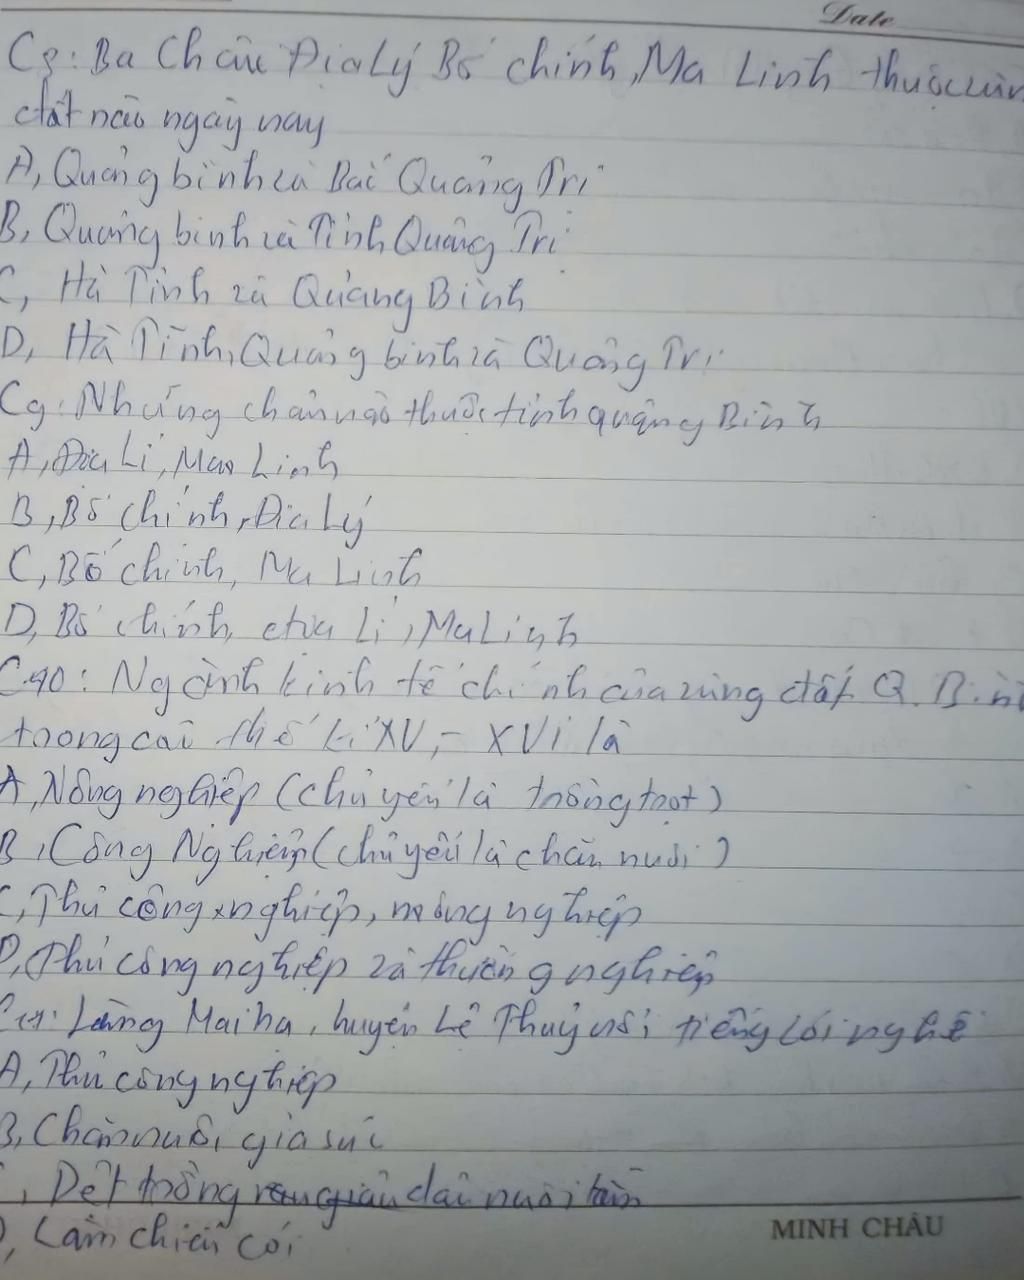 Date
C8: Ba Châu Địa Lý Bố chính, Ma Linh thuộc vùn
đất nào ngày nay
A, Quảng bình và Bắc Quảng Trị
B, Quảng bình và Tỉnh Quảng Trị
C, Hà Tỉnh và Quảng Bình
D, Hà Tĩnh, Quảng bình và Quảng Trị
C9: Những châu nào thuộc tỉnh quảng Bình
A, Địa Lí, Ma Linh
B, Bố chính, Địa Lý
C, Bố chính, Ma Linh
D, Bố chính, địa Lí, Ma Linh
C10: Ngành kinh tế chính của vùng đất Q. Bìn
trong các thế kỉ XV, - XVI là
A, Nông nghiệp (chủ yếu là trồng trọt)
B, Công Nghiệp (chủ yếu là chăn nuôi)
C, Thủ công nghiệp, nông nghiệp
D, Thủ công nghiệp và thương nghiệp
C11: Làng Mai hạ, huyện Lệ Thuỷ nổi tiếng với nghề
A, Thủ công nghiệp
B, Chăn nuôi gia súc
, Dệt trồng dâu nuôi tằm
D, Làm chiếu cói
MINH CHÂU